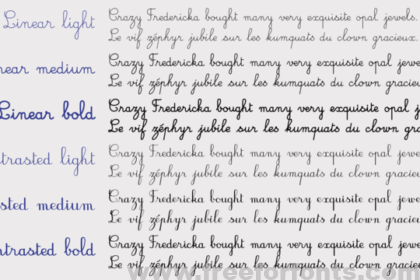 Linear light
Crazy Fredericka bought many very exquisite opal jewels.
Le vif zéphyr jubile sur les kumquats du clown gracieux.
near medium
Crazy Fredericka bought many very exquisite opal jewe
Le vif zéphyr jubile sur les kumquats du clown gracieu
Linear bold
Crazy Fredericka bought many very exquisite opal je
Le vif zéphyr jubile sur les kumquats du clown gra
trasted light
Crazy Fredericka bought many very exquisite opal jewel
Le vif zéphyr jubile sur les kumquats du clown gracieu
sted medium
Crazy Fredericka bought many very exquisite opal jewe
Le vif zéphyr jubile sur les kumquats du clown gracieu
ntrasted bold
Crazy Fredericka bought many very exquisite opal jew
Le vif zéphyr jubile sur les kumquats du clown graci